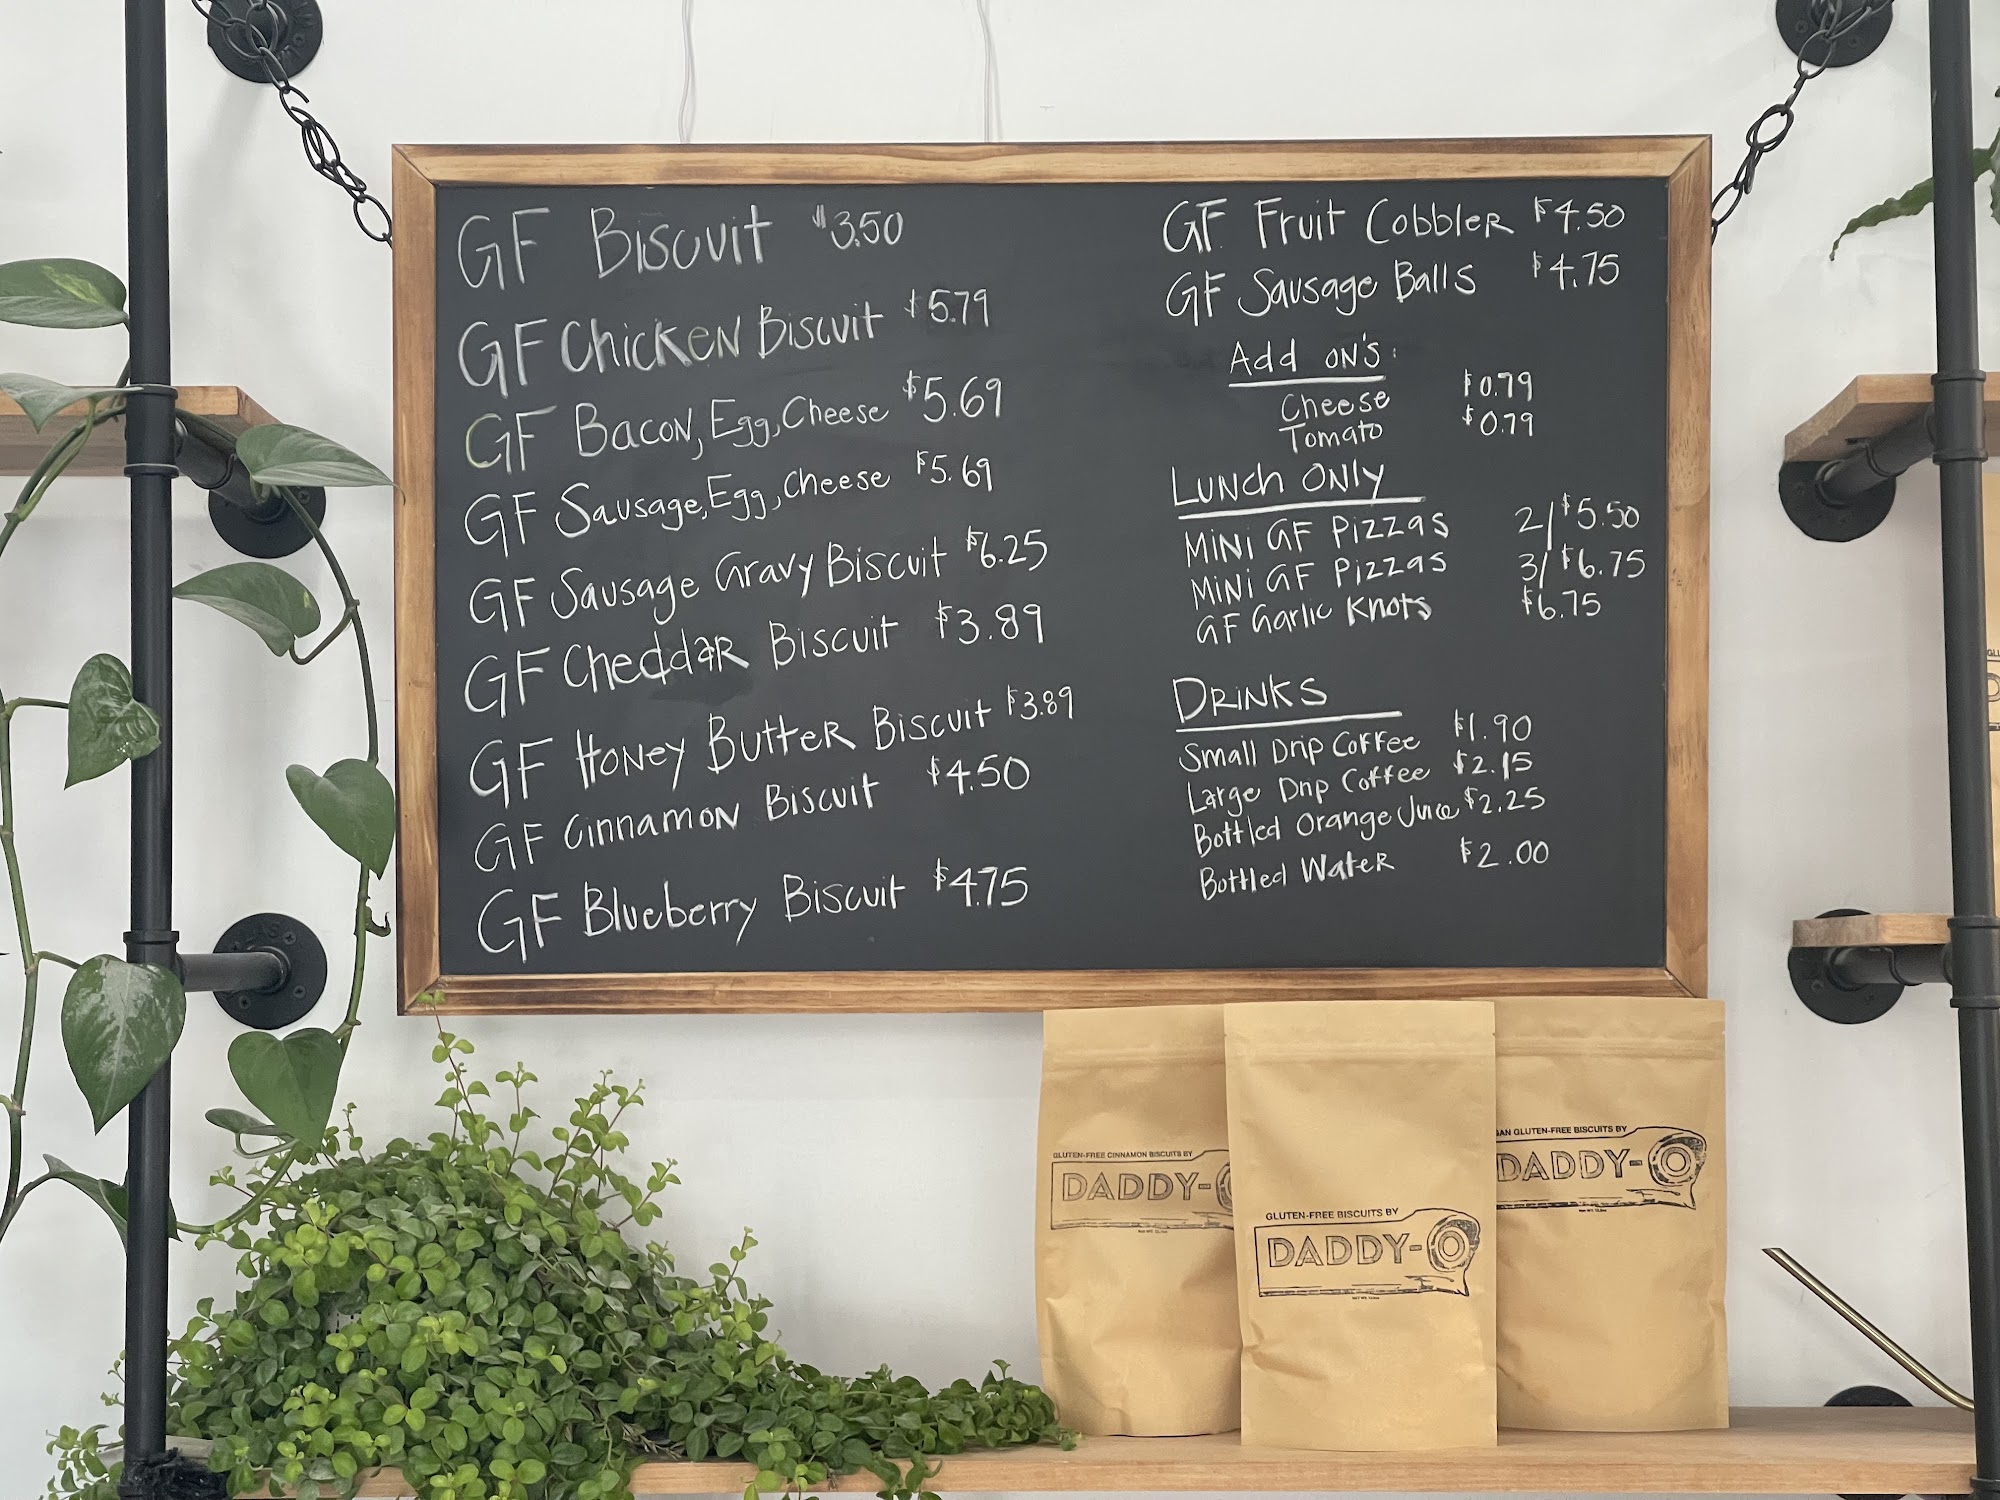 GF Biscuit $3.50
GF Chicken Biscuit $5.79
GF Bacon, Egg, Cheese $5.69
GF Sausage, Egg, Cheese $5.69
GF Sausage Gravy Biscuit $6.25
GF Cheddar Biscuit $3.89
GF Honey Butter Biscuit $3.89
GF Cinnamon Biscuit $4.50
GF Blueberry Biscuit $4.75
GF Fruit Cobbler $4.50
GF Sausage Balls $4.75
Add on's:
Cheese $0.79
Tomato $0.79
Lunch Only
Mini GF Pizzas 2/$5.50
Mini GF Pizzas 3/$6.75
GF Garlic Knots $6.75
Drinks
Small Drip Coffee $1.90
Large Drip Coffee $2.15
Bottled Orange Juice $2.25
Bottled Water $2.00
GLUTEN-FREE CINNAMON BISCUITS BY
DADDY-O
GLUTEN-FREE BISCUITS BY
DADDY-O
GLUTEN-FREE BISCUITS BY
DADDY-O